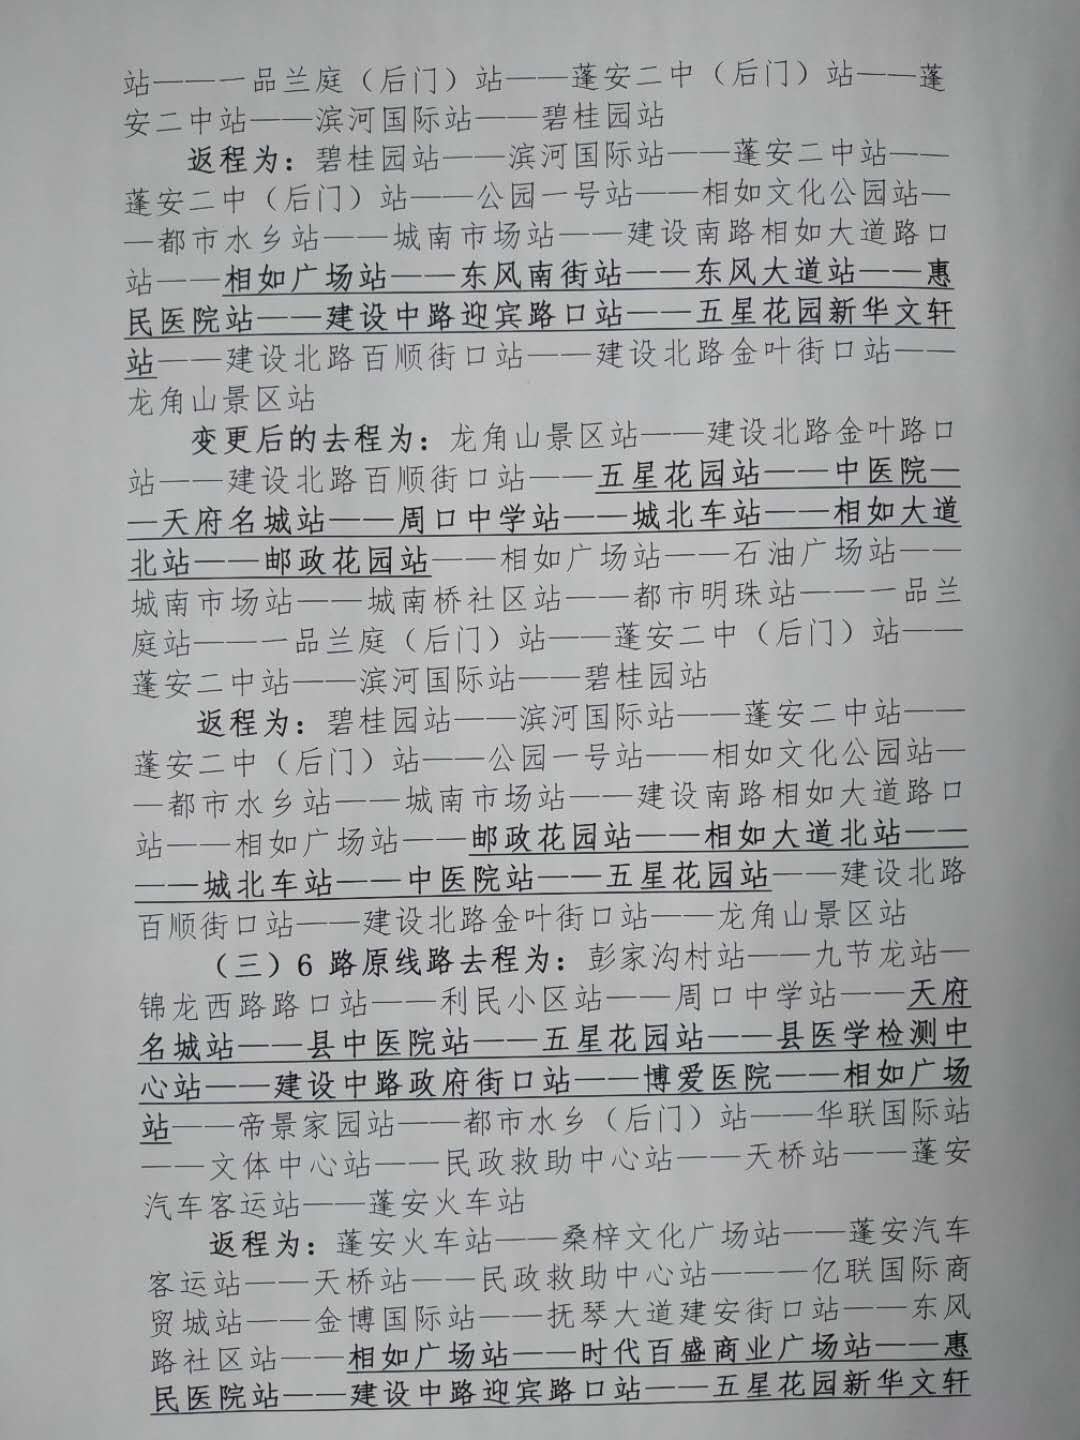 站——一品兰庭（后门）站——蓬安二中（后门）站——蓬
安二中站——滨河国际站——碧桂园站
返程为：碧桂园站——滨河国际站——蓬安二中站——
蓬安二中（后门）站——公园一号站——相如文化公园站—
—都市水乡站——城南市场站——建设南路相如大道路口
站——相如广场站——东风南街站——东风大道站——惠
民医院站——建设中路迎宾路口站——五星花园新华文轩
站——建设北路百顺街口站——建设北路金叶街口站——
龙角山景区站
变更后的去程为：龙角山景区站——建设北路金叶路口
站——建设北路百顺街口站——五星花园站——中医院—
—天府名城站——周口中学站——城北车站——相如大道
北站——邮政花园站——相如广场站——石油广场站——
城南市场站——城南桥社区站——都市明珠站——一品兰
庭站——一品兰庭（后门）站——蓬安二中（后门）站——
蓬安二中站——滨河国际站——碧桂园站
返程为：碧桂园站——滨河国际站——蓬安二中站——
蓬安二中（后门）站——公园一号站——相如文化公园站—
—都市水乡站——城南市场站——建设南路相如大道路口
站——相如广场站——邮政花园站——相如大道北站——
——城北车站——中医院站——五星花园站——建设北路
百顺街口站——建设北路金叶街口站——龙角山景区站
（三）6 路原线路去程为：彭家沟村站——九节龙站—
锦龙西路路口站——利民小区站——周口中学站——天府
名城站——县中医院站——五星花园站——县医学检测中
心站——建设中路政府街口站——博爱医院——相如广场
站——帝景家园站——都市水乡（后门）站——华联国际站
——文体中心站——民政救助中心站——天桥站——蓬安
汽车客运站——蓬安火车站
返程为：蓬安火车站——桑梓文化广场站——蓬安汽车
客运站——天桥站——民政救助中心站———亿联国际商
贸城站——金博国际站——抚琴大道建安街口站——东风
路社区站——相如广场站——时代百盛商业广场站——惠
民医院站——建设中路迎宾路口站——五星花园新华文轩